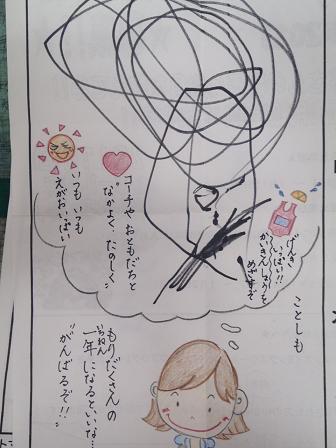 ことしも
げんき
いっぱい!!
かいきんしょうを
めざすぞ
コーチや おともだちと
"なかよく、たのしく"
いつも いつも
えがおいっぱい
もりだくさんの
一年になるといいな…
いちねん
"がんばるぞ!!"